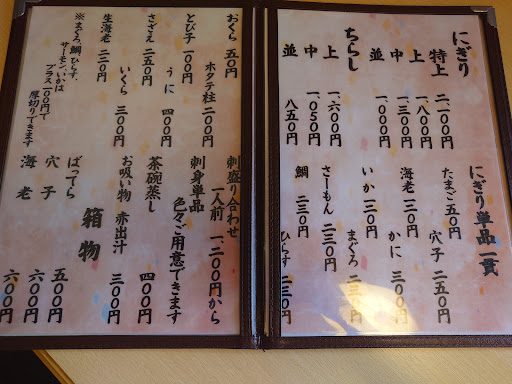 にぎり
特上 二、一〇〇円
上 一、八〇〇円
中 一、三〇〇円
並 一、〇〇〇円
ちらし
上 一、六〇〇円
中 一、〇五〇円
並 八五〇円
にぎり単品一貫
たまご 五〇円
穴子 二五〇円
海老 一三〇円
かに 三〇〇円
いか 一三〇円
まぐろ 二三〇円
さーもん 二三〇円
鯛 二三〇円
ひらす 二三〇円
おくら 五〇円
ホタテ柱 二〇〇円
とび子 一〇〇円
うに 四〇〇円
さざえ 二五〇円
いくら 三〇〇円
生海老 二三〇円
※まぐろ、鯛、ひらす、
サーモン、いかは
プラス一〇〇円で
厚切りできます
刺盛り合わせ
一人前 一、二〇〇円から
刺身単品
色々ご用意できます
茶碗蒸し 四〇〇円
お吸い物 赤出汁 三〇〇円
箱物
ばってら 五〇〇円
穴子 六〇〇円
海老 六〇〇円